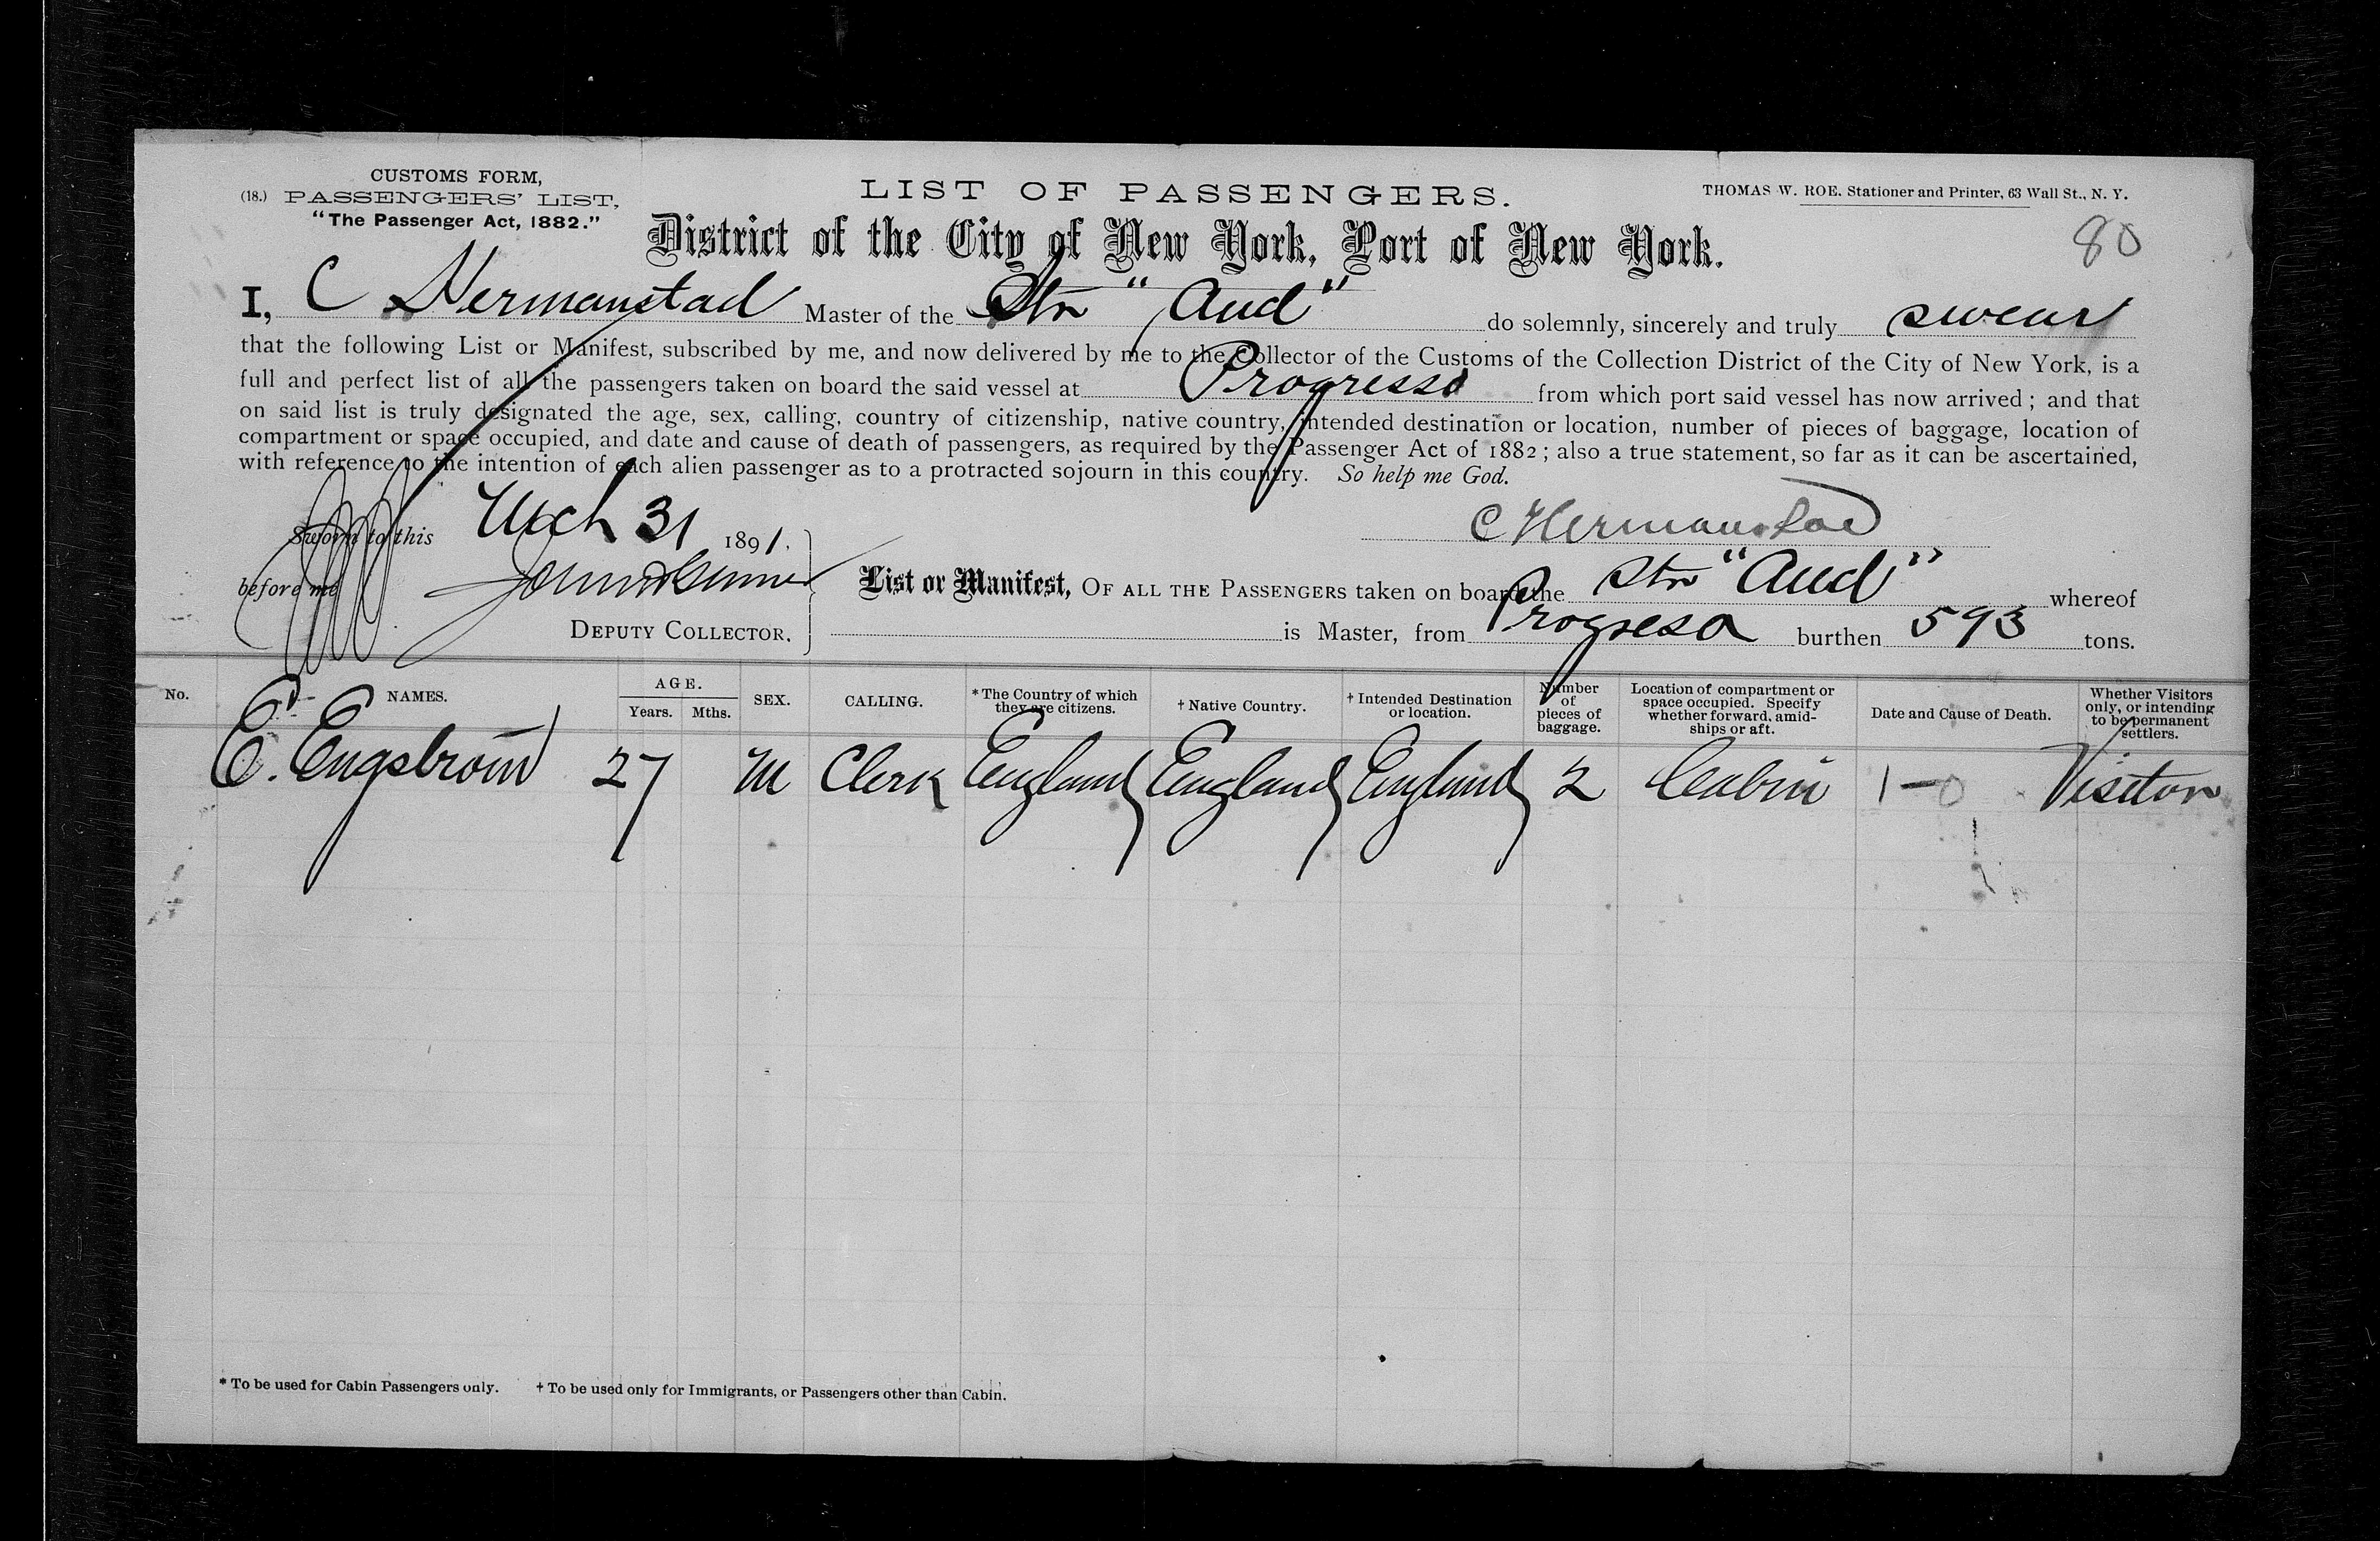 CUSTOMS FORM,
(18.) PASSENGERS' LIST,
"The Passenger Act, 1882."
LIST OF PASSENGERS.
THOMAS W. ROE. Stationer and Printer, 63 Wall St., N. Y.
District of the City of New York, Port of New York.
80
I, C Hermanstad Master of the Str "Aud" do solemnly, sincerely and truly swear
that the following List or Manifest, subscribed by me, and now delivered by me to the Collector of the Customs of the Collection District of the City of New York, is a
full and perfect list of all the passengers taken on board the said vessel at Progresso from which port said vessel has now arrived; and that
on said list is truly designated the age, sex, calling, country of citizenship, native country, intended destination or location, number of pieces of baggage, location of
compartment or space occupied, and date and cause of death of passengers, as required by the Passenger Act of 1882; also a true statement, so far as it can be ascertained,
with reference to the intention of each alien passenger as to a protracted sojourn in this country. So help me God.
Sworn to this Mch 31 1891.
C Hermanstad
before me
DEPUTY COLLECTOR.
List or Manifest, OF ALL THE PASSENGERS taken on board the Str "Aud" whereof
is Master, from Progreso burthen 593 tons.
No. NAMES. AGE. Years. Mths. SEX. CALLING. * The Country of which they are citizens. † Native Country. † Intended Destination or location. Number of pieces of baggage. Location of compartment or space occupied. Specify whether forward, amid-ships or aft. Date and Cause of Death. Whether Visitors only, or intending to be permanent settlers.
E. Engstrom 27 M Clerk England England England 2 Cabin 1-0 Visitor
* To be used for Cabin Passengers only. † To be used only for Immigrants, or Passengers other than Cabin.